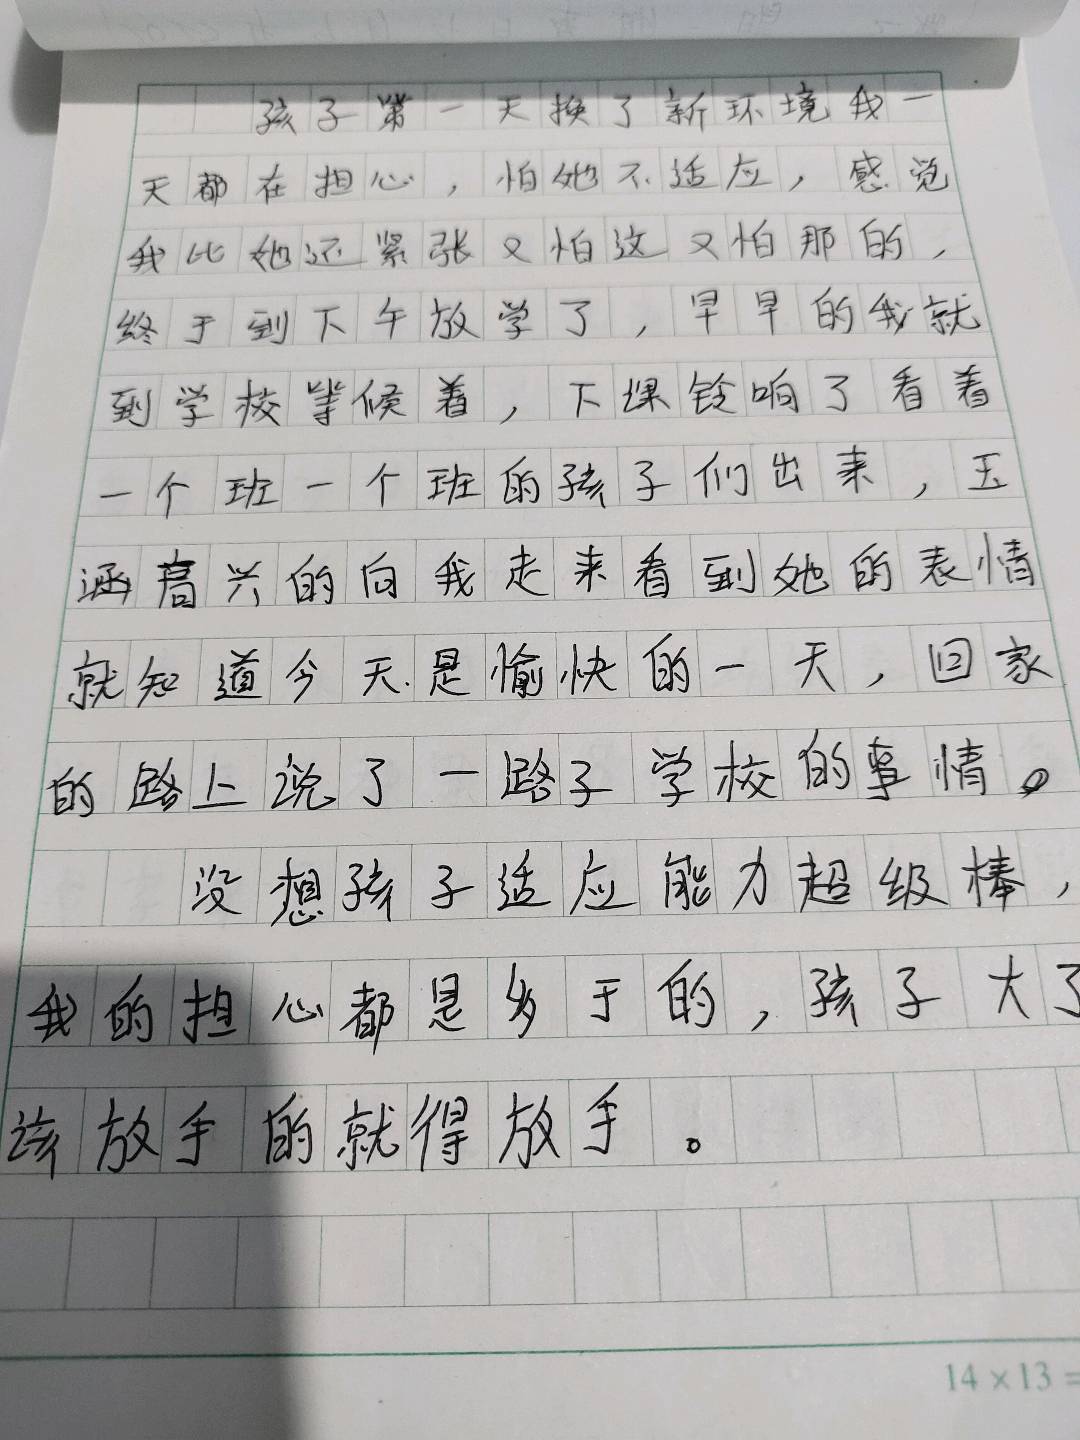 孩子第一天换了新环境我一
天都在担心，怕她不适应，感觉
我比她还紧张又怕这又怕那的，
终于到下午放学了，早早的我就
到学校等候着，下课铃响了看着
一个班一个班的孩子们出来，玉
涵高兴的向我走来看到她的表情
就知道今天是愉快的一天，回家
的路上说了一路子学校的事情。
没想孩子适应能力超级棒，
我的担心都是多于的，孩子大了
该放手的就得放手。
14×13=